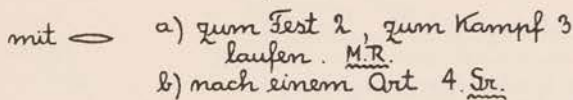 mit a) zum Fest 2, zum Kampf 3
laufen. M.R.
b) nach einem Ort 4. Sr.